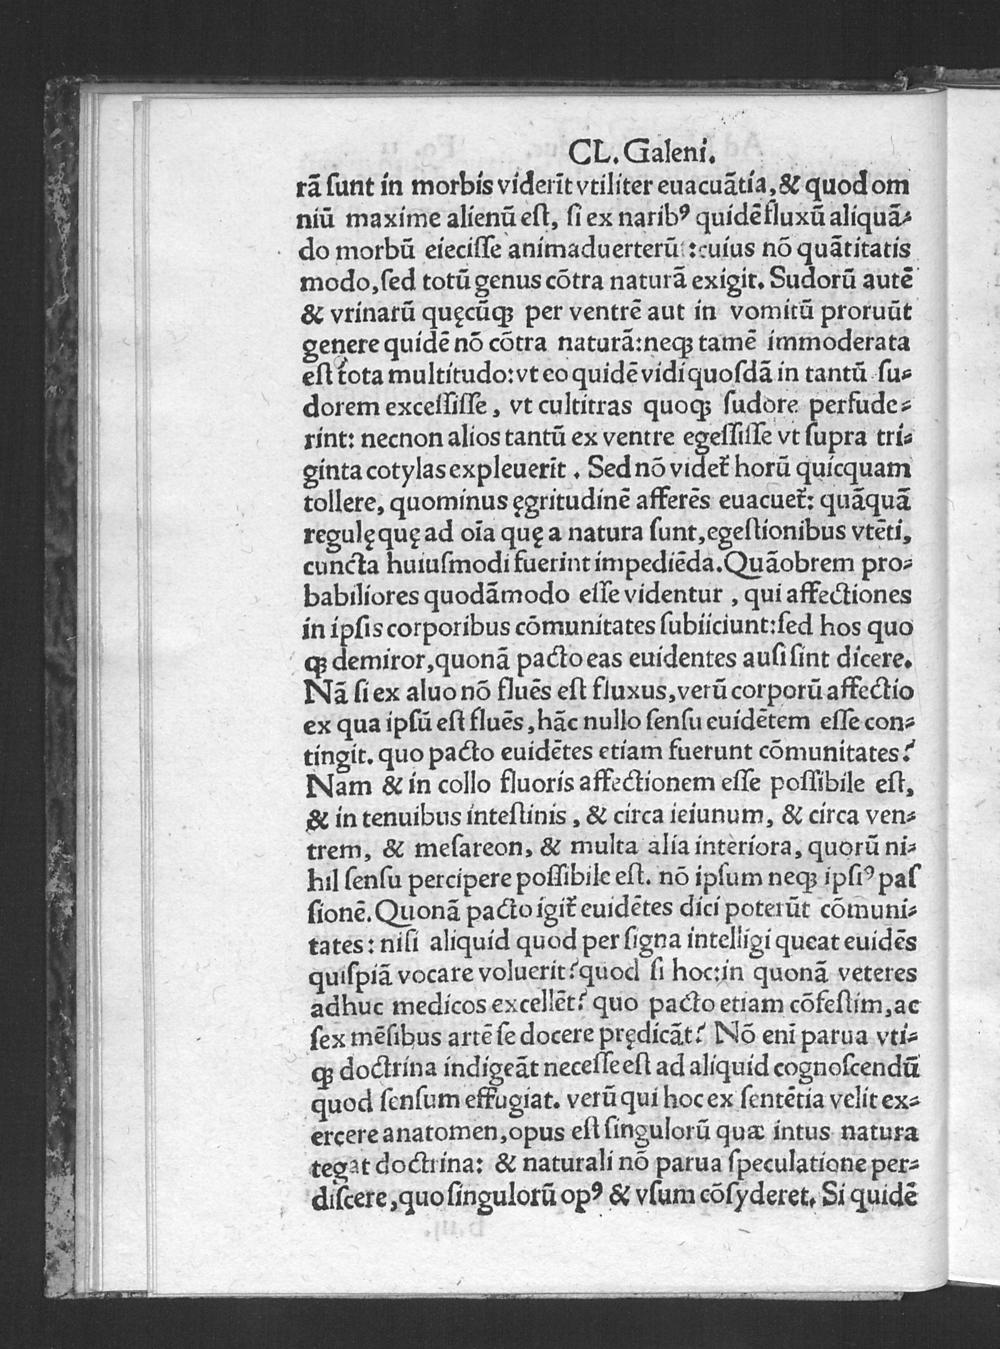 CL. Galeni.
rā ſunt in morbis viderīt vtiliter euacuātia, & quod om
niū maxime alienū eſt, ſi ex naribꝰ quidē fluxū aliquā⸗
do morbū eieciſſe animaduerterū :cuius nō quātitatis
modo, ſed totū genus cōtra naturā exigit. Sudorū autē
& vrinarū quęcūqꝫ per ventrē aut in vomitū proruūt
genere quidē nō cōtra naturā: neqꝫ tamē immoderata
eſt tota multitudo: vt eo quidē vidi quoſdā in tantū ſu⸗
dorem exceſſiſſe, vt cultitras quoqꝫ ſudore perfude⸗
rint: necnon alios tantū ex ventre egeſſiſſe vt ſupra tri⸗
ginta cotylas expleuerīt. Sed nō videt̃ horū quicquam
tollere, quominus ęgritudinē afferēs euacuet̃: quāquā
regulę quę ad oīa quę a natura ſunt, egeſtionibus vtēti,
cuncta huiuſmodi fuerint impediēda. Quāobrem pro⸗
babiliores quodāmodo eſſe videntur, qui affectiones
in ipſis corporibus cōmunitates ſubiiciunt: ſed hos quo
qꝫ demiror, quonā pacto eas euidentes auſi ſint dicere.
Nā ſi ex aluo nō fluēs eſt fluxus, verū corporū affectio
ex qua ipſū eſt fluēs, hāc nullo ſenſu euidētem eſſe con⸗
tingit. quo pacto euidētes etiam fuerunt cōmunitates?
Nam & in collo fluoris affectionem eſſe poſſibile eſt,
& in tenuibus inteſtinis, & circa ieiunum, & circa ven⸗
trem, & meſareon, & multa alia interiora, quorū ni⸗
hil ſenſu percipere poſſibile eſt. nō ipſum neqꝫ ipſiꝰ paſ
ſionē. Quonā pacto igit̃ euidētes dici poterūt cōmuni⸗
tates: niſi aliquid quod per ſigna intelligi queat euidēs
quiſpiā vocare voluerit? quod ſi hoc: in quonā veteres
adhuc medicos excellēt? quo pacto etiam cōfeſtim, ac
ſex mēſibus artē ſe docere prędicāt? Nō enī parua vti⸗
qꝫ doctrina indigeāt neceſſe eſt ad aliquid cognoſcendū
quod ſenſum effugiat. verū qui hoc ex ſentētia velit ex⸗
ercere anatomen, opus eſt ſingulorū quæ intus natura
tegat doctrina: & naturali nō parua ſpeculatione per⸗
diſcere, quo ſingulorū opꝰ & vſum cōſyderet. Si quidē